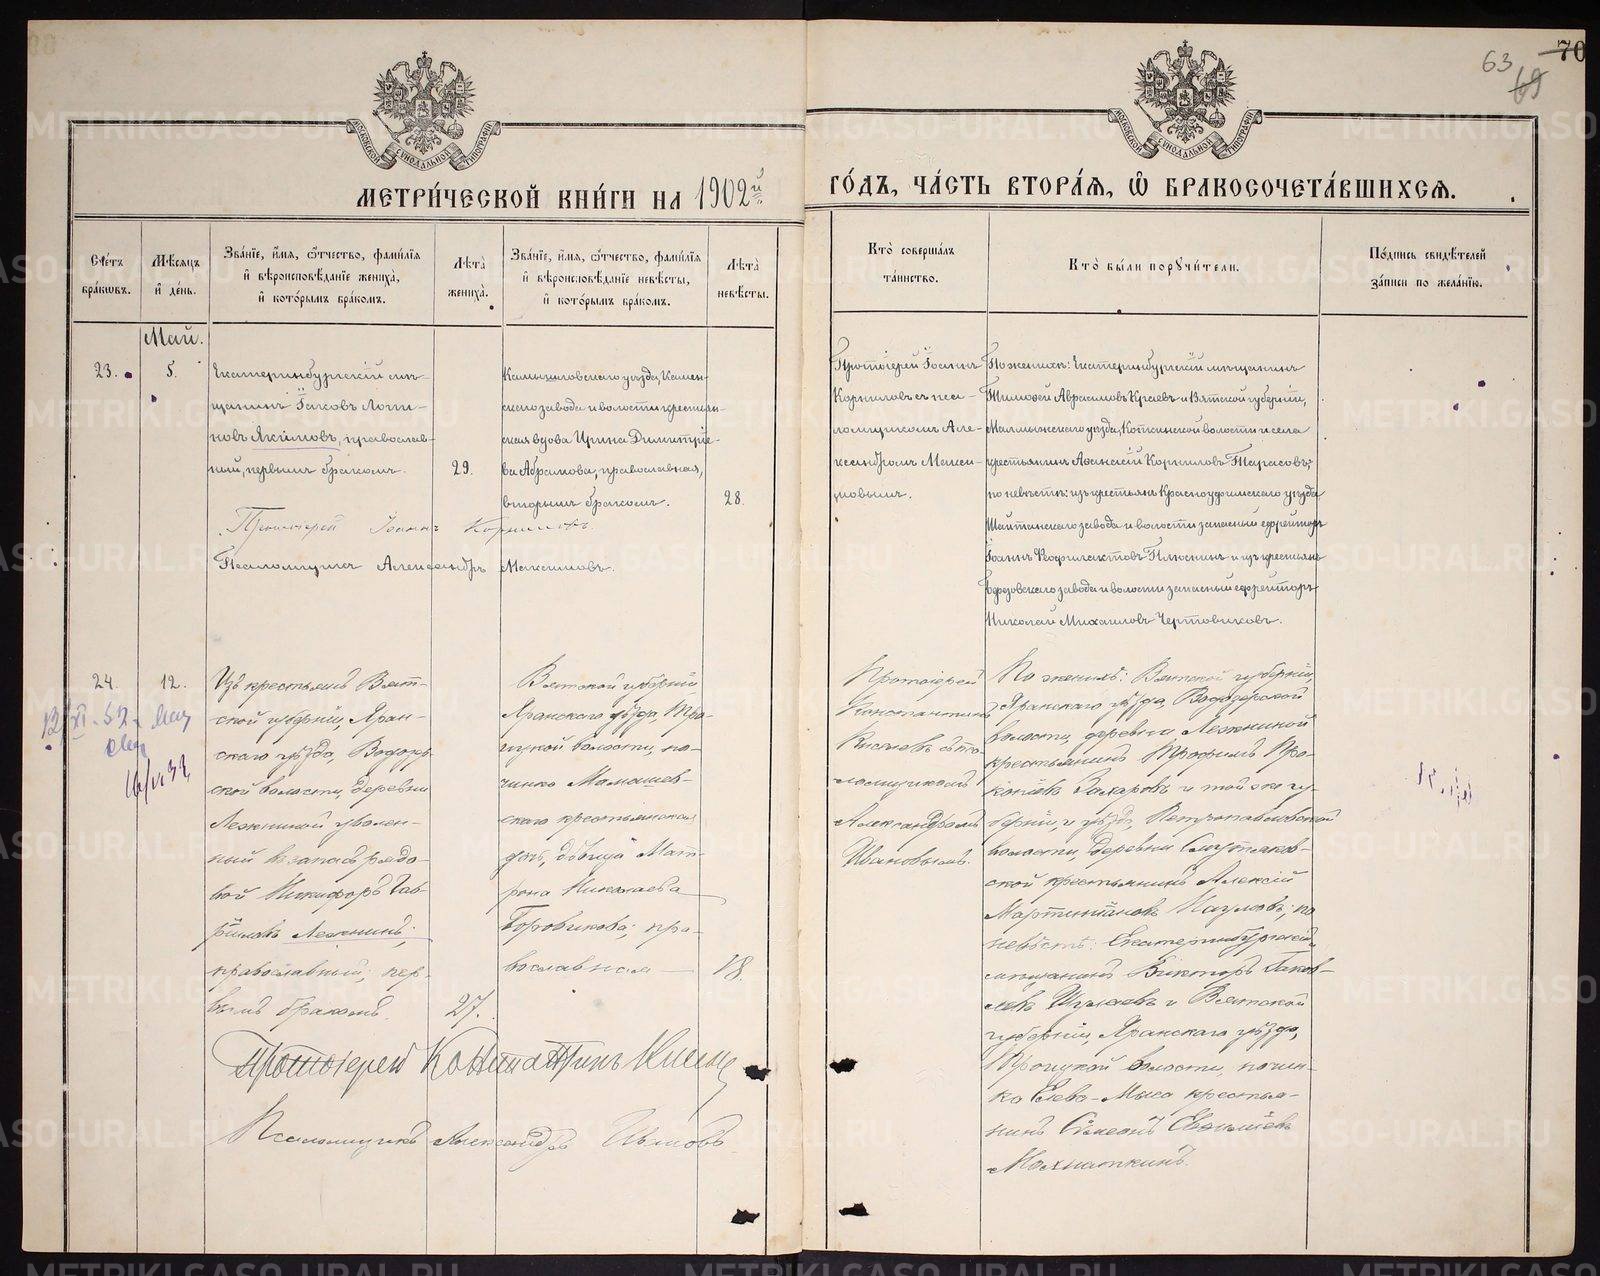 63
69
70
МОСКОВСКОЙ СѴНОДАЛЬНОЙ ТИПОГРАФІИ
МОСКОВСКОЙ СѴНОДАЛЬНОЙ ТИПОГРАФІИ
МЕТРИ́ЧЕСКОЙ КНИ́ГИ НА 1902й ГО́ДЪ, ЧА́СТЬ ВТОРА́Я, Ѽ БРАКОСОЧЕТА́ВШИХСЯ.
Сче́тъ
бра́кѡвъ.
Мѣ́сяцъ
и҆ де́нь.
Зва́нїе, и҆́мя, ѻ҆́тчество, фами́лїя
и҆ вѣроисповѣ́данїе жениха̀,
и҆ кото́рымъ бра́комъ.
Лѣ́та
жениха̀.
Зва́нїе, и҆́мя, ѻ҆́тчество, фами́лїя
и҆ вѣроисповѣ́данїе невѣ́сты,
и҆ кото́рымъ бра́комъ.
Лѣ́та
невѣ́сты.
Кто̀ соверша́лъ
та́инство.
Кто̀ бы́ли порꙋчи́тели.
По́дпись свидѣ́телей
за́писи по жела́нїю.
Май.
23.
5.
Екатеринбургскій мѣ-
щанинъ Іаковъ Логи-
новъ Якимовъ, православ-
ный, первымъ бракомъ.
29.
Камышловскаго уѣзда, Камен-
скаго завода и волости крестьян-
ская вдова Ирина Димитріе-
ва Абрамова, православная,
вторымъ бракомъ.
28.
Протоіерей Іоаннъ
Корниловъ съ пса-
ломщикомъ Але-
ксандромъ Макси-
мовымъ.
По женихѣ: Екатеринбургскій мѣщанинъ
Тимофей Авраамовъ Краевъ и Вятской губерніи,
Малмыжскаго уѣзда, Копкинской волости и села
крестьянинъ Афанасій Корниловъ Тарасовъ;
по невѣстѣ: изъ крестьянъ Красноуфимскаго уѣзда
Шайтанскаго завода и волости запасный ефрейторъ
Іоаннъ Феофилактовъ Плюснинъ и изъ крестьянъ
завода и волости запасный ефрейторъ
Николай Михаиловъ Чертовиковъ.
Протоіерей Іоаннъ Корниловъ.
Псаломщикъ Александръ Максимовъ.
24.
12.
Изъ крестьянъ Вят-
ской губерніи, Яран-
скаго уѣзда, Водозер-
ской волости, деревни
Лежниной уволен-
ный въ запасъ рядо-
вой Никифоръ Гав-
риловъ Лежнинъ;
православный; пер-
вымъ бракомъ.
27.
Вятской губерніи,
Яранскаго уѣзда, Тро-
ицкой волости, по-
чинка Мамашев-
скаго крестьянская
дочь, дѣвица Мат-
рона Николаева
Боровикова; пра-
вославная
18.
Протоіерей
Константинъ
съ пса-
ломщикомъ
Александромъ
Ивановымъ.
По женихѣ: Вятской губерніи,
Яранскаго уѣзда, Водозерской
волости, деревни Лежниной
крестьянинъ Трофимъ Про-
копіевъ Захаровъ и той же гу-
берніи, и уѣзда, Петропавловской
волости, деревни
крестьянинъ Алексій
по
невѣстѣ: Екатеринбургскій
мѣщанинъ Викторъ Іаков-
левъ и Вятской
губерніи, Яранскаго уѣзда,
Троицкой волости, почин-
ка Елево-Мыса крестья-
нинъ
Махнаткинъ.
Протоіерей Константинъ
Псаломщикъ Александръ Ивановъ.
METRIKI.GASO-URAL.RU